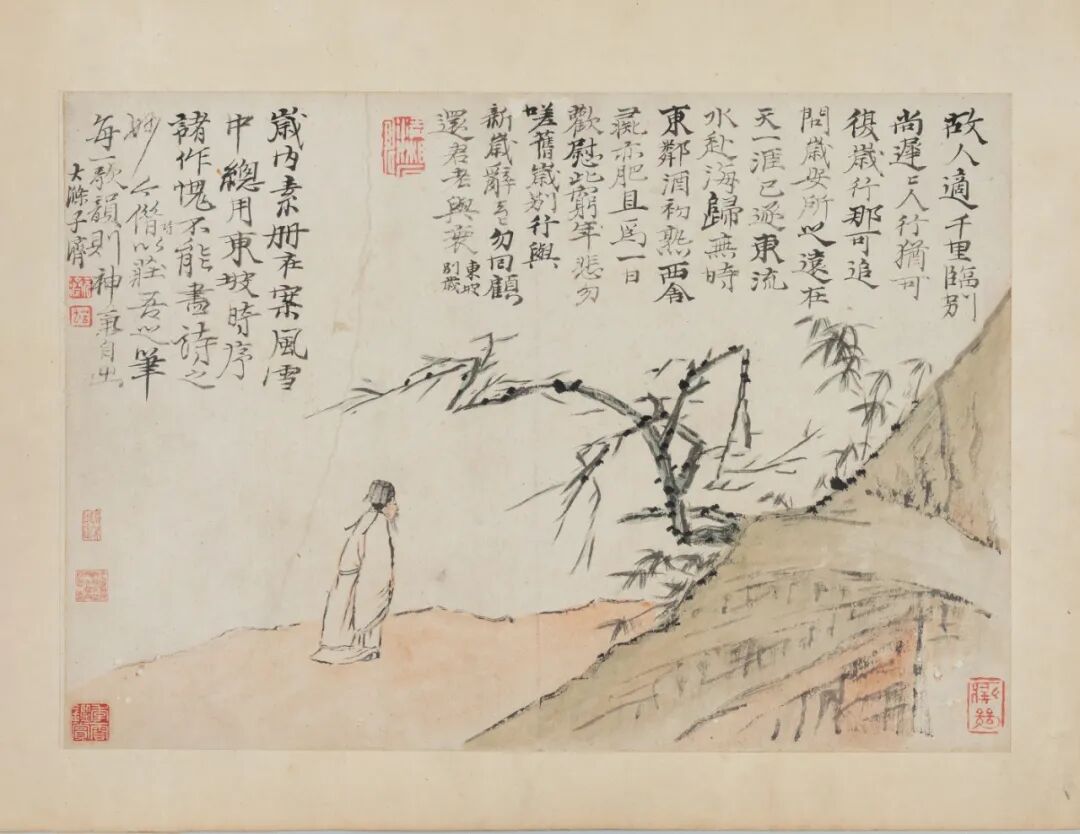 故人適千里臨別
尚遲〻人行猶可
復歲行那可追
問歲安所之遠在
天一涯已逐東流
水赴海歸無時
東鄰酒初熟西舍
彘亦肥且為一日
歡慰此窮年悲勿
嗟舊歲別行與
新歲辭去〻勿回顧
還君老與衰
東坡
別歲
歲內素冊在案風雪
中總用東坡時序
諸作愧不能盡詩之
妙今僭以莊吾之筆
每一歌韻則神氣自出
大滌子濟